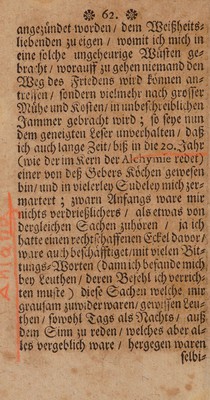 62.
angezündet worden / dem Weißheits-
liebenden zu eigen / womit ich mich in
eine solche ungeheurige Wüsten ge-
bracht / worauff zu gehen niemand den
Weg des Friedens wird können an-
treffen / sondern vielmehr nach grosser
Mühe und Kosten / in unbeschreiblichen
Jammer gebracht wird; so seye nun
dem geneigten Leser unverhalten / daß
ich auch lange Zeit / biß in die 20. Jahr
(wie der im Kern der Alchymie redet)
einer von deß Gebers Köchen gewesen
bin / und in vielerley Sudeley mich zer-
martert; zwarn Anfangs ware mir
nichts verdrießlichers / als etwas von
dergleichen Sachen zuhören / ja ich
hatte einen rechtschaffenen Eckel davor /
ware auch beschäfftiget / mit vielen Bit-
tungs-Worten (dann ich befande mich
bey Leuthen / deren Befehl ich verrich-
ten muste) diese Sachen welche mir
grausam zuwider waren / gewissen Leu-
then / sowohl Tags als Nachts / auß
dem Sinn zu reden / welches aber al-
les vergeblich ware / hergegen waren
selbi-
Anfang